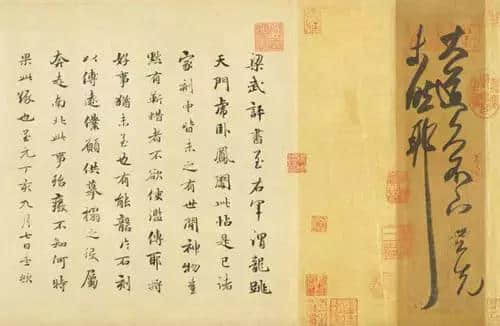 大道久不下与先
未然耶
梁武評書至右軍謂龍跳
天門虎卧鳳闕此帖是已諸
家刻中皆未之有世間神物豈
黙有靳惜者不欲使濫傳耶将
好事猶未至也有能石刻
以傳遠僕願供摹搨之役屬
奔走南北此事殆廢不知何時
果此縁也至元丁亥九月七日